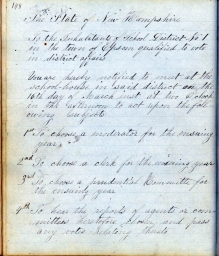 198
The State of New Hampshire
To the Inhabitants of School District No 1
in the town of Epsom qualified to vote
in district affairs
You are hereby notified to meet at the
school-house in said district on the
16th day of March inst at two o'clock
in the afternoon to act upon the fol
owing
1st To choose a moderator for the ensuing
year
2nd To choose a clerk for the ensuing year
3rd To choose a prudential Committee for
the ensuing year
4th To hear the reports of agents or com
mittees heretofore chosen and pass
any votes relating thereto